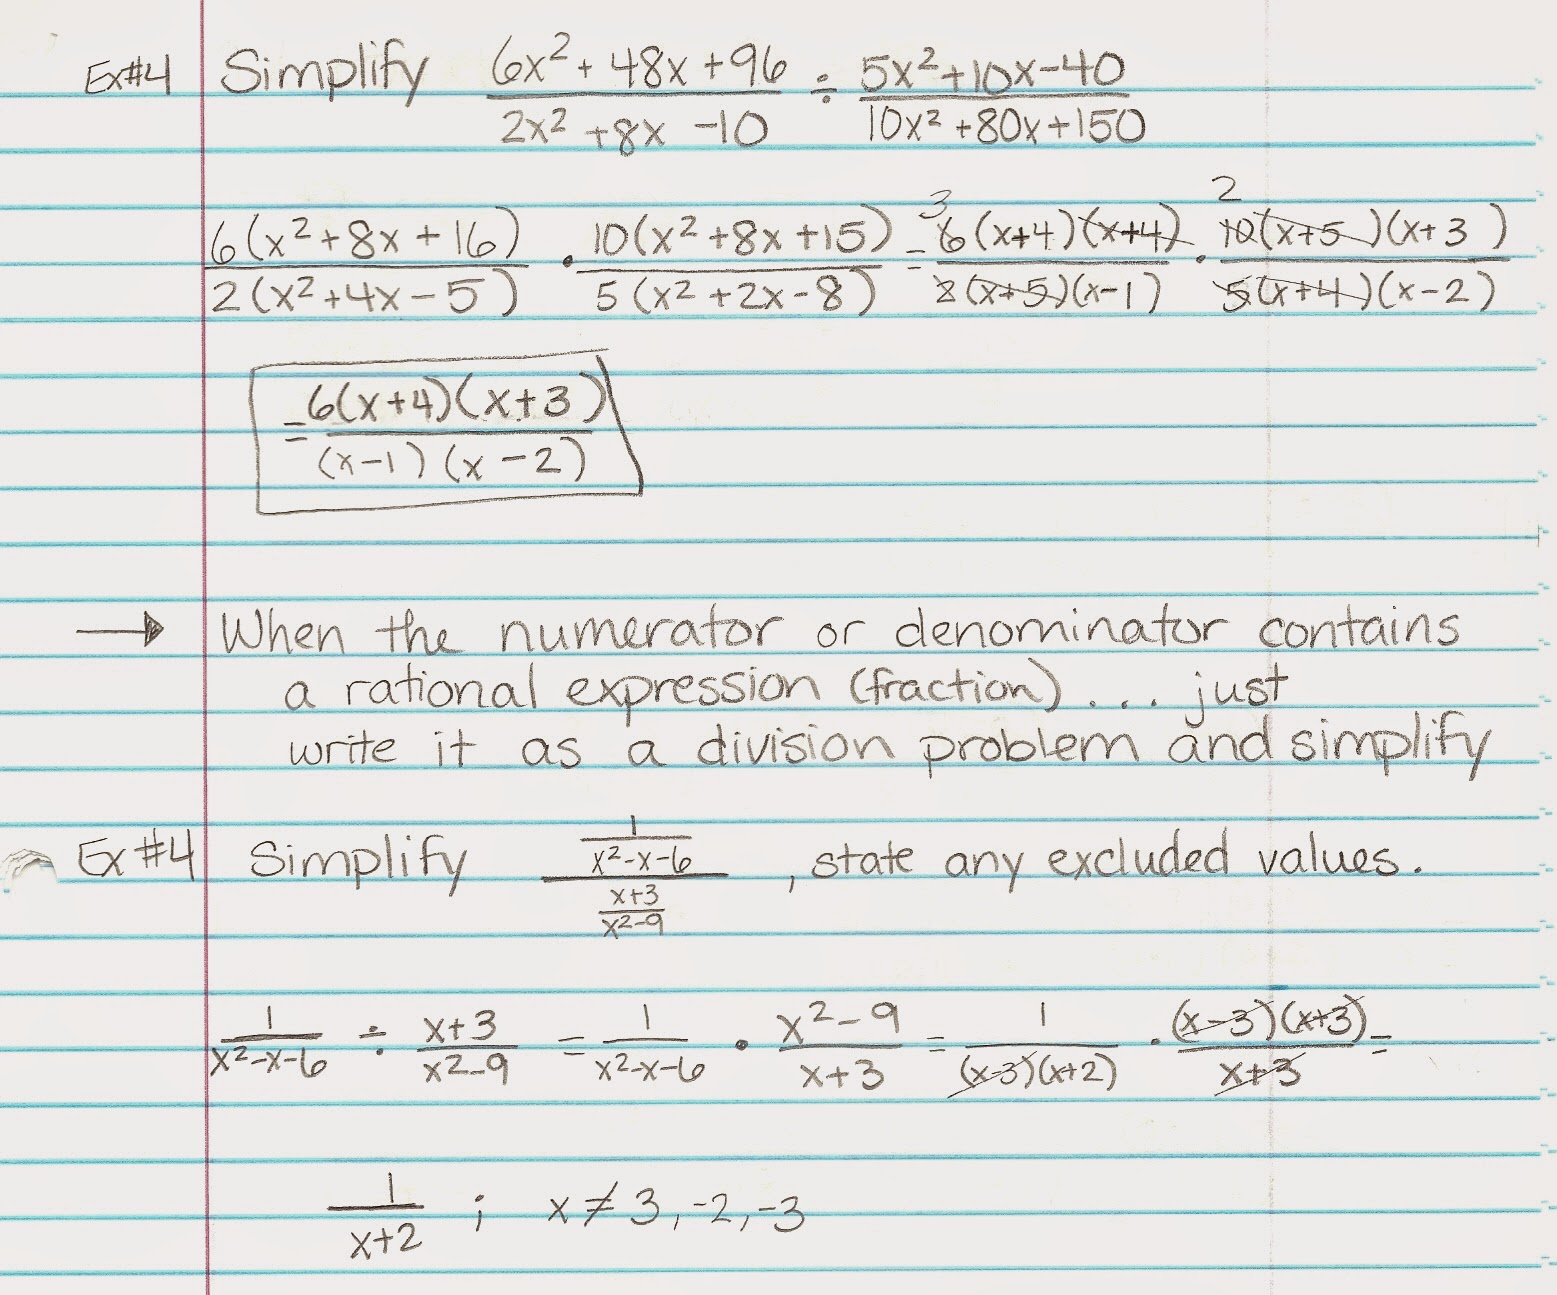 Ex#4 Simplify (6x²+48x+96)/(2x²+8x-10) ÷ (5x²+10x-40)/(10x²+80x+150)
6(x²+8x+16)/2(x²+4x-5) · 10(x²+8x+15)/5(x²+2x-8) = 3 6(x+4)(x+4)/2(x+5)(x-1) · 2 10(x+5)(x+3)/5(x+4)(x-2)
= 6(x+4)(x+3)/(x-1)(x-2)
→ When the numerator or denominator contains
a rational expression (fraction)... just
write it as a division problem and simplify
Ex #4 Simplify (1/(x²-x-6))/((x+3)/(x²-9)), state any excluded values.
1/(x²-x-6) ÷ (x+3)/(x²-9) = 1/(x²-x-6) · (x²-9)/(x+3) = 1/(x-3)(x+2) · (x-3)(x+3)/(x+3) =
1/(x+2) ; x≠3,-2,-3